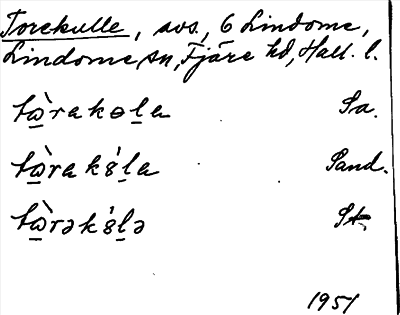 Torekulle, avs., 6 Lindome,
Lindome sn, Fjäre hd, Hall. l.
tὼ̲rakɵl̲a Sa.
tὼ̲rak8́l̲a Sand.
tὼ̲rək8́l̲ə St.
1951